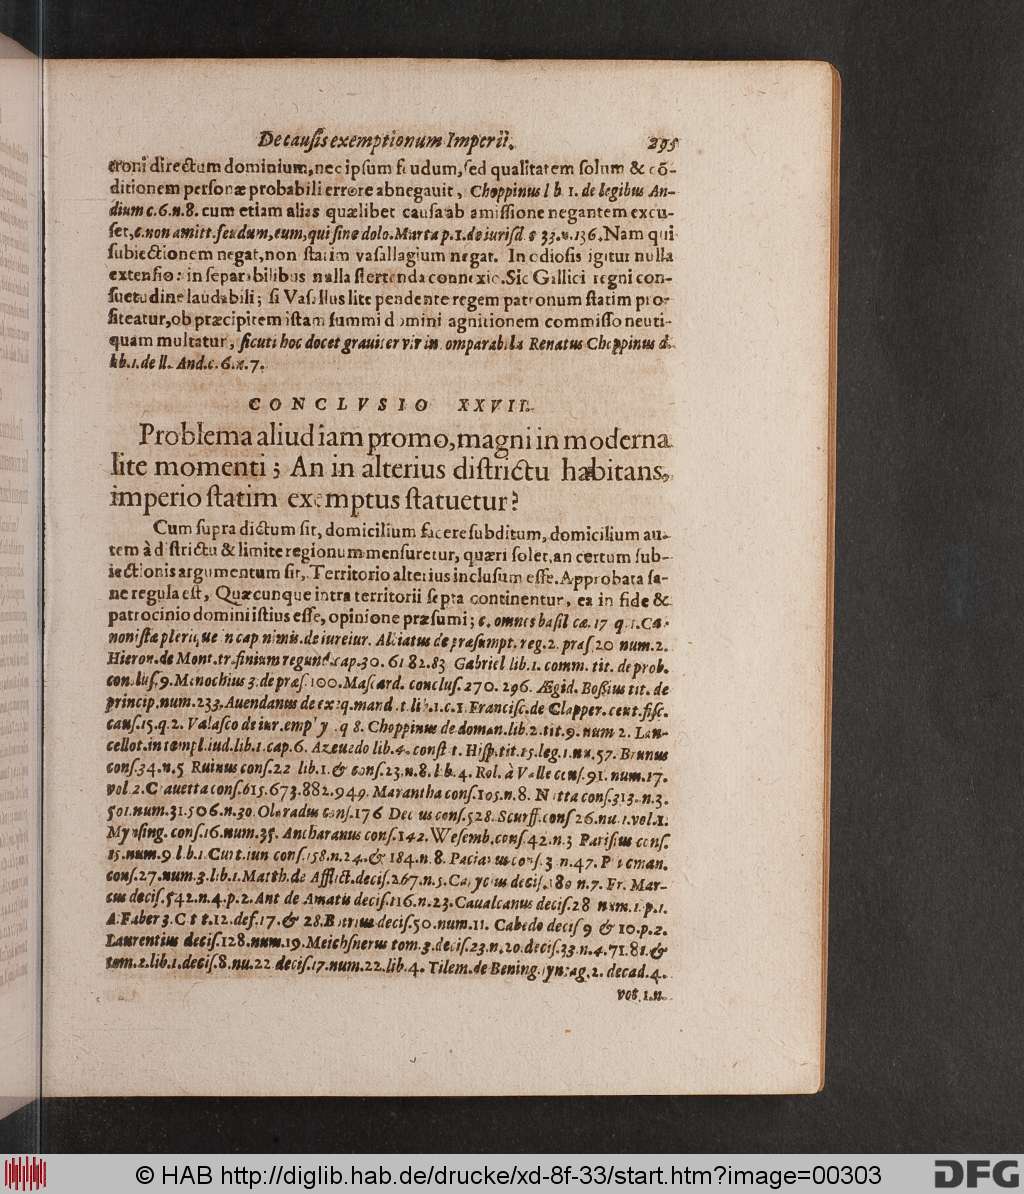 De causis exemptionum Imperii. 295
troni directum dominium, nec ipsum feudum, sed qualitatem solum & cō-
ditionem personæ probabili errore abnegauit, Choppinus lib. 1. de legibus An-
dium c. 6. n. 8. cum etiam alias quælibet causa ab amissione negantem excu-
set, c. non amitt. feudum, eum, qui sine dolo. Marta p. 1. de iurisd. c 33. n. 136. Nam qui
subiectionem negat, non statim vasallagium negat. In odiosis igitur nulla
extensio: in separabilibus nulla stertenda connexio. Sic Gallici regni con-
suetudine laudabili; si Vasallus lite pendente regem patronum statim pro-
fiteatur, ob præcipitem istam summi domini agnitionem commisso neuti-
quam multatur, sicuti hoc docet grauiter vir incomparabilis Renatus Choppinus d.
lib. 1. de ll. And. c. 6. n. 7.
CONCLVSIO XXVII.
Problema aliud iam promo, magni in moderna
lite momenti; An in alterius districtu habitans,
imperio statim exemptus statuetur?
Cum supra dictum sit, domicilium facere subditum, domicilium au-
tem à districtu & limite regionum mensuretur, quæri solet, an certum sub-
iectionis argumentum sit, Territorio alterius inclusum esse. Approbata sa-
ne regula est, Quæcunque intra territorii septa continentur, ea in fide &
patrocinio domini istius esse, opinione præsumi; c. omnes basil. ca. 17 q. 1. Ca-
nonistæ plerique in cap. nimis. de iureiur. Alciatus de præsumpt. reg. 2. præs. 20 num. 2.
Hieron. de Mont. tr. finium regund. cap. 30. 61 82. 83 Gabriel lib. 1. comm. tit. de prob.
conclus. 9. Menochius 3. de præs. 100. Mascard. conclus. 270. 296. Ægid. Bossius tit. de
princip. num. 233. Auendanus de exeq. mand. t. lib. 1. c. 1. Francisc. de Clapper. cent. fisc.
caus. 15. q. 2. Valasco de iur. emphyt. q 8. Choppinus de doman. lib. 2. tit. 9. num 2. Lan-
cellot. in templ. iud. lib. 1. cap. 6. Azeuedo lib. 4. const t. Hisp. tit. 15. leg. 1. nu. 57. Brunus
cons. 34. n. 5 Ruinus cons. 22 lib. 1. & cons. 23. n. 8. lib. 4. Rol. à Valle cons. 91. num. 17.
vol. 2. Crauetta cons. 615. 673. 882. 949. Marantha cons. 105. n. 8. Natta cons. 313. n. 3.
501. num. 31. 506. n. 30. Oldradus cons. 176 Decius cons. 528. Scurff. cons 26. nu. 1. vol. 1.
Mynsing. cons. 16. num. 35. Ancharanus cons. 142. Wesemb. cons. 42. n. 3 Parisius cons.
15. num. 9 lib. 1. Curt. iun cons. 158. n. 24. & 184. n. 8. Pacianus cons. 3. n. 47. Pucman.
cons. 27. num. 3. lib. 1. Matth. de Afflict. decis. 267. n. 5. Capycius decis. 180 n. 7. Fr. Mar-
cus decis. 542. n. 4. p. 2. Ant de Amatis decis. 116. n. 23. Caualcanus decis. 28 num. 1. p. 1.
A. Faber 3. C. t t. 12. def. 17. & 28. decis. 50. num. 11. Cabedo decis 9 & 10. p. 2.
Laurentius decis. 128. num. 19. Meichsnerus tom. 3. decis. 23. n. 20. decis. 33. n. 4. 71. 81. &
tom. 2. lib. 1. decis. 8. nu. 22 decis. 17. num. 22. lib. 4. Tilem. de Bening. syntag. 2. decad. 4.
vot. 1. n.
© HAB http://diglib.hab.de/drucke/xd-8f-33/start.htm?image=00303
DFG